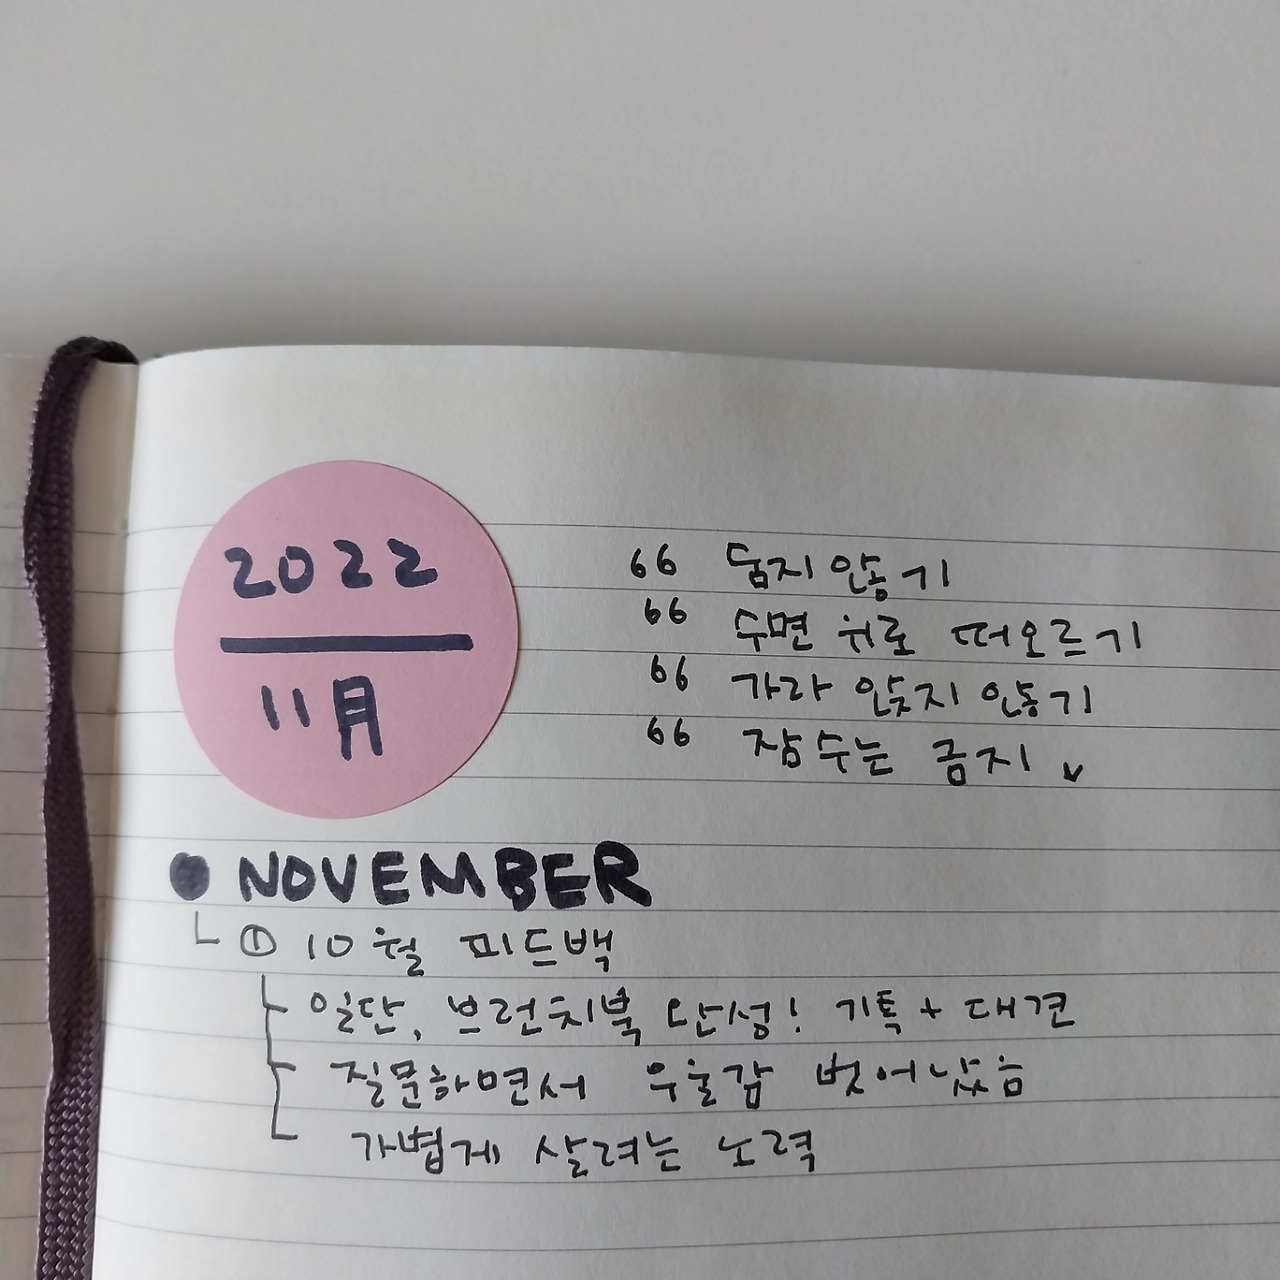 2022
11月
66 돕지 않기
66 수면 위로 떠오르기
66 가라 앉지 않기
66 잠수는 금지 v
● NOVEMBER
└ ① 10월 피드백
├ 일단, 브런치북 완성! 기특 + 대견
├ 질문하면서 우울감 벗어났음
└ 가볍게 살려는 노력